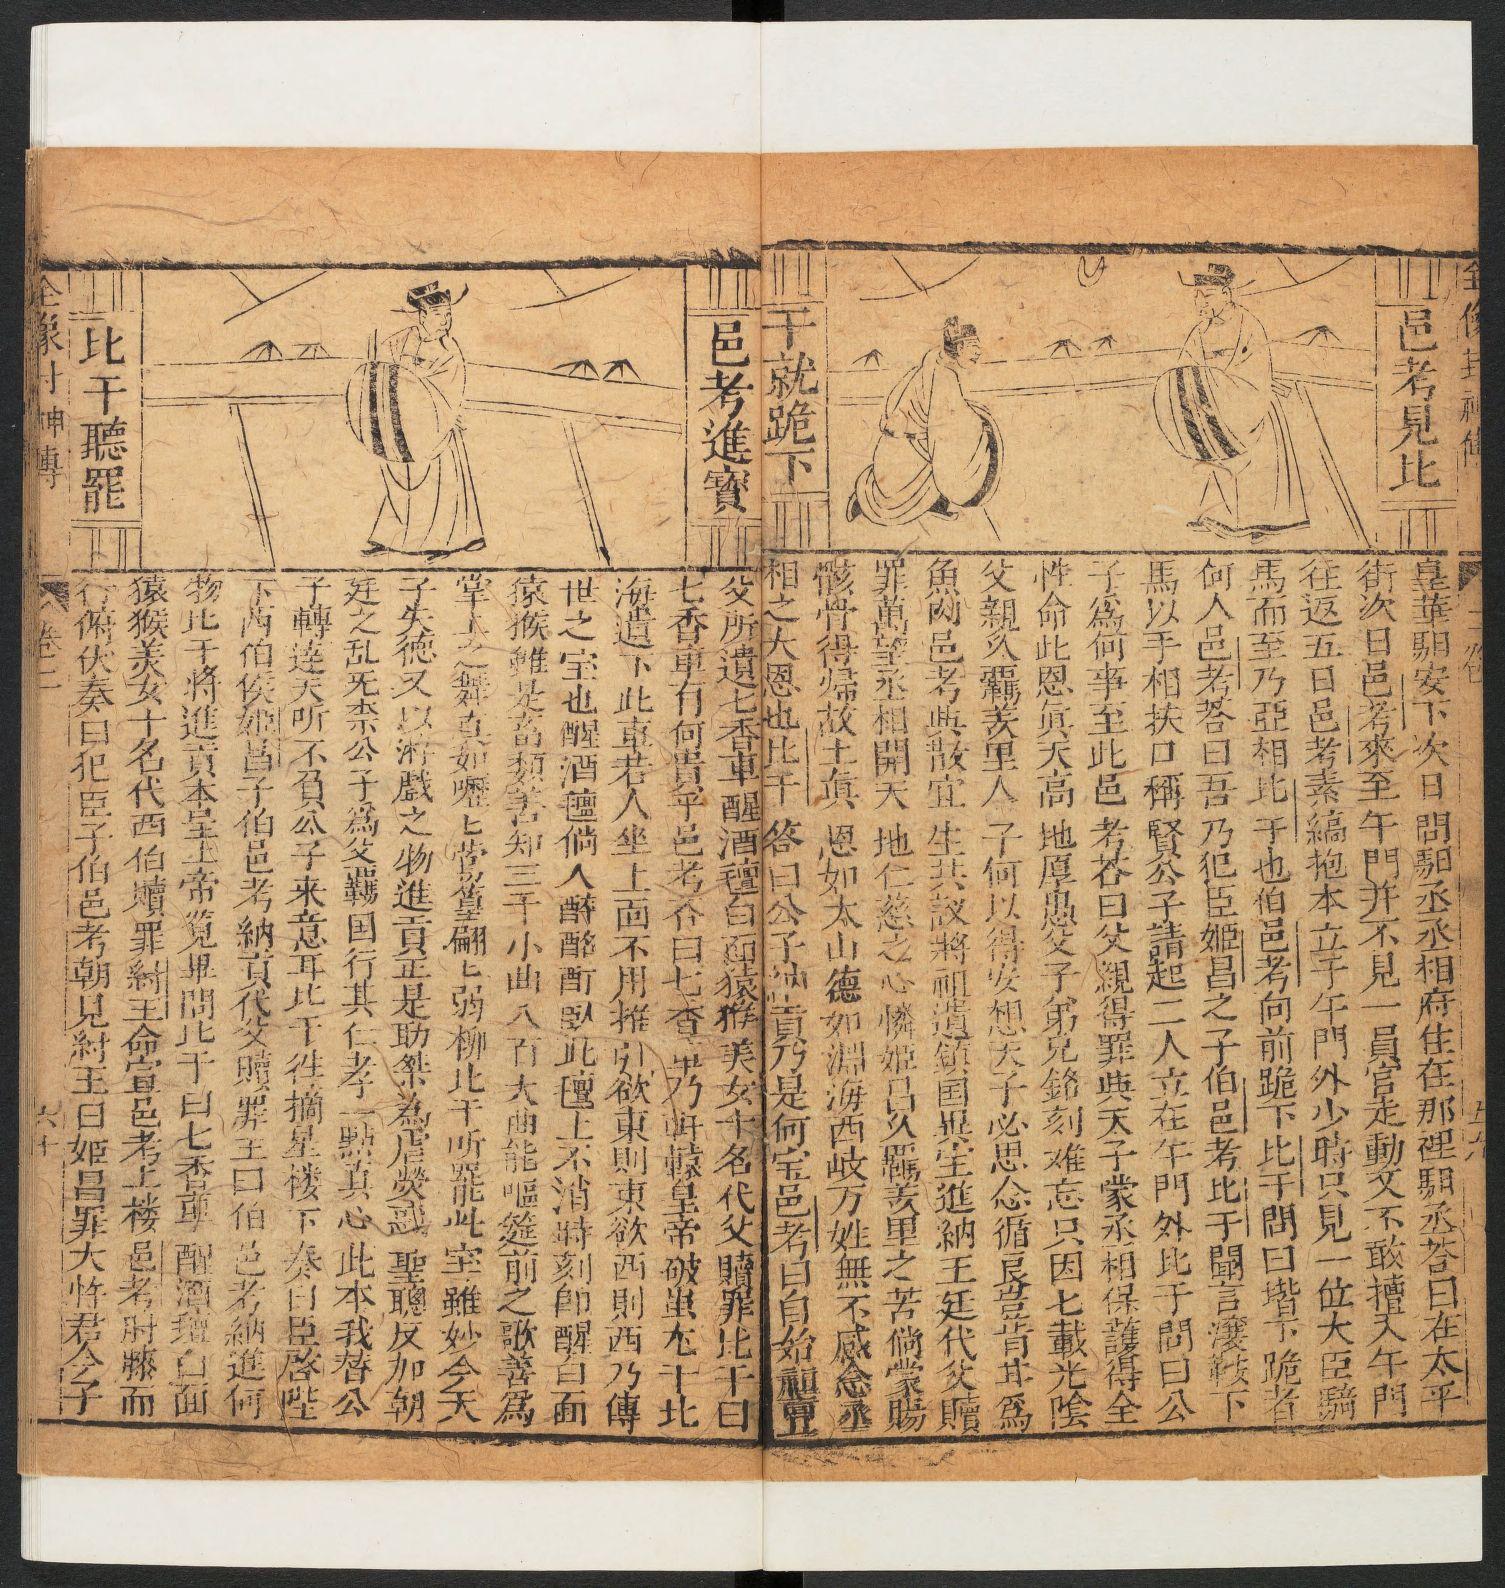 邑考見比
干就跪下
皇華馹安下次日問馹丞丞相府住在那裡馹丞荅曰在太平
街次日邑考來至午門并不見一員官走動又不敢擅入午門
往返五日邑考素縞抱本立于午門外少時只見一位大臣騎
馬而至乃亞相比干也伯邑考向前跪下比干問曰堦下跪者
何人邑考荅曰吾乃犯臣姬昌之子伯邑考比干聞言滾鞍下
馬以手相扶口稱賢公子請起二人立在午門外比干問曰公
子爲何事至此邑考荅曰父親得罪與天子蒙丞相保護得全
性命此恩眞天高地厚愚父子弟兄銘刻难忘只因七載光陰
父親久羈羑里人子何以得安想天子必思念循良豈肯甘爲
魚肉邑考與散宜生共議將祖遺鎮国異宝進納王廷代父贖
罪萬望丞相開天地仁慈之心憐姬昌久羈羑里之苦倘蒙賜
骸骨得歸故土眞恩如太山德如淵海西岐万姓無不感念丞
相之大恩也比干答曰公子納貢乃是何宝邑考曰自始祖亶
邑考進寳
比干聽罷
父所遺七香車醒酒氊白面猿猴美女十名代父贖罪比干曰
七香車有何貴乎邑考答曰七香車乃軒轅皇帝破蚩尤于北
海遺下此車若人坐上面不用推引欲東則東欲西則西乃傳
世之宝也醒酒氊倘人醉酩酊臥此氊上不消時刻卽醒白面
猿猴雖是畜類善知三千小曲八百大曲能嘔筵前之歌善爲
掌上之舞眞如嚦ヒ鶯篁翩ヒ弱柳比干听罷此宝雖妙今天
子失德又以游戲之物進貢正是助桀爲虐熒惑聖聰反加朝
廷之乱旡柰公子爲父羈国行其仁孝一點真心此本我替公
子轉達天听不負公子來意耳比干徃摘星楼下奏曰臣啓陛
下西伯侯姬昌子伯邑考納貢代父贖罪王曰伯邑考納進何
物比干將進貢本呈上帝覧畢問比干曰七香車醒酒氊白面
猿猴美女十名代西伯贖罪紂王命宣邑考上楼邑考肘膝而
行俯伏奏曰犯臣子伯邑考朝見紂王曰姬昌罪大忤君今子
全像封神傳
卷二
六十